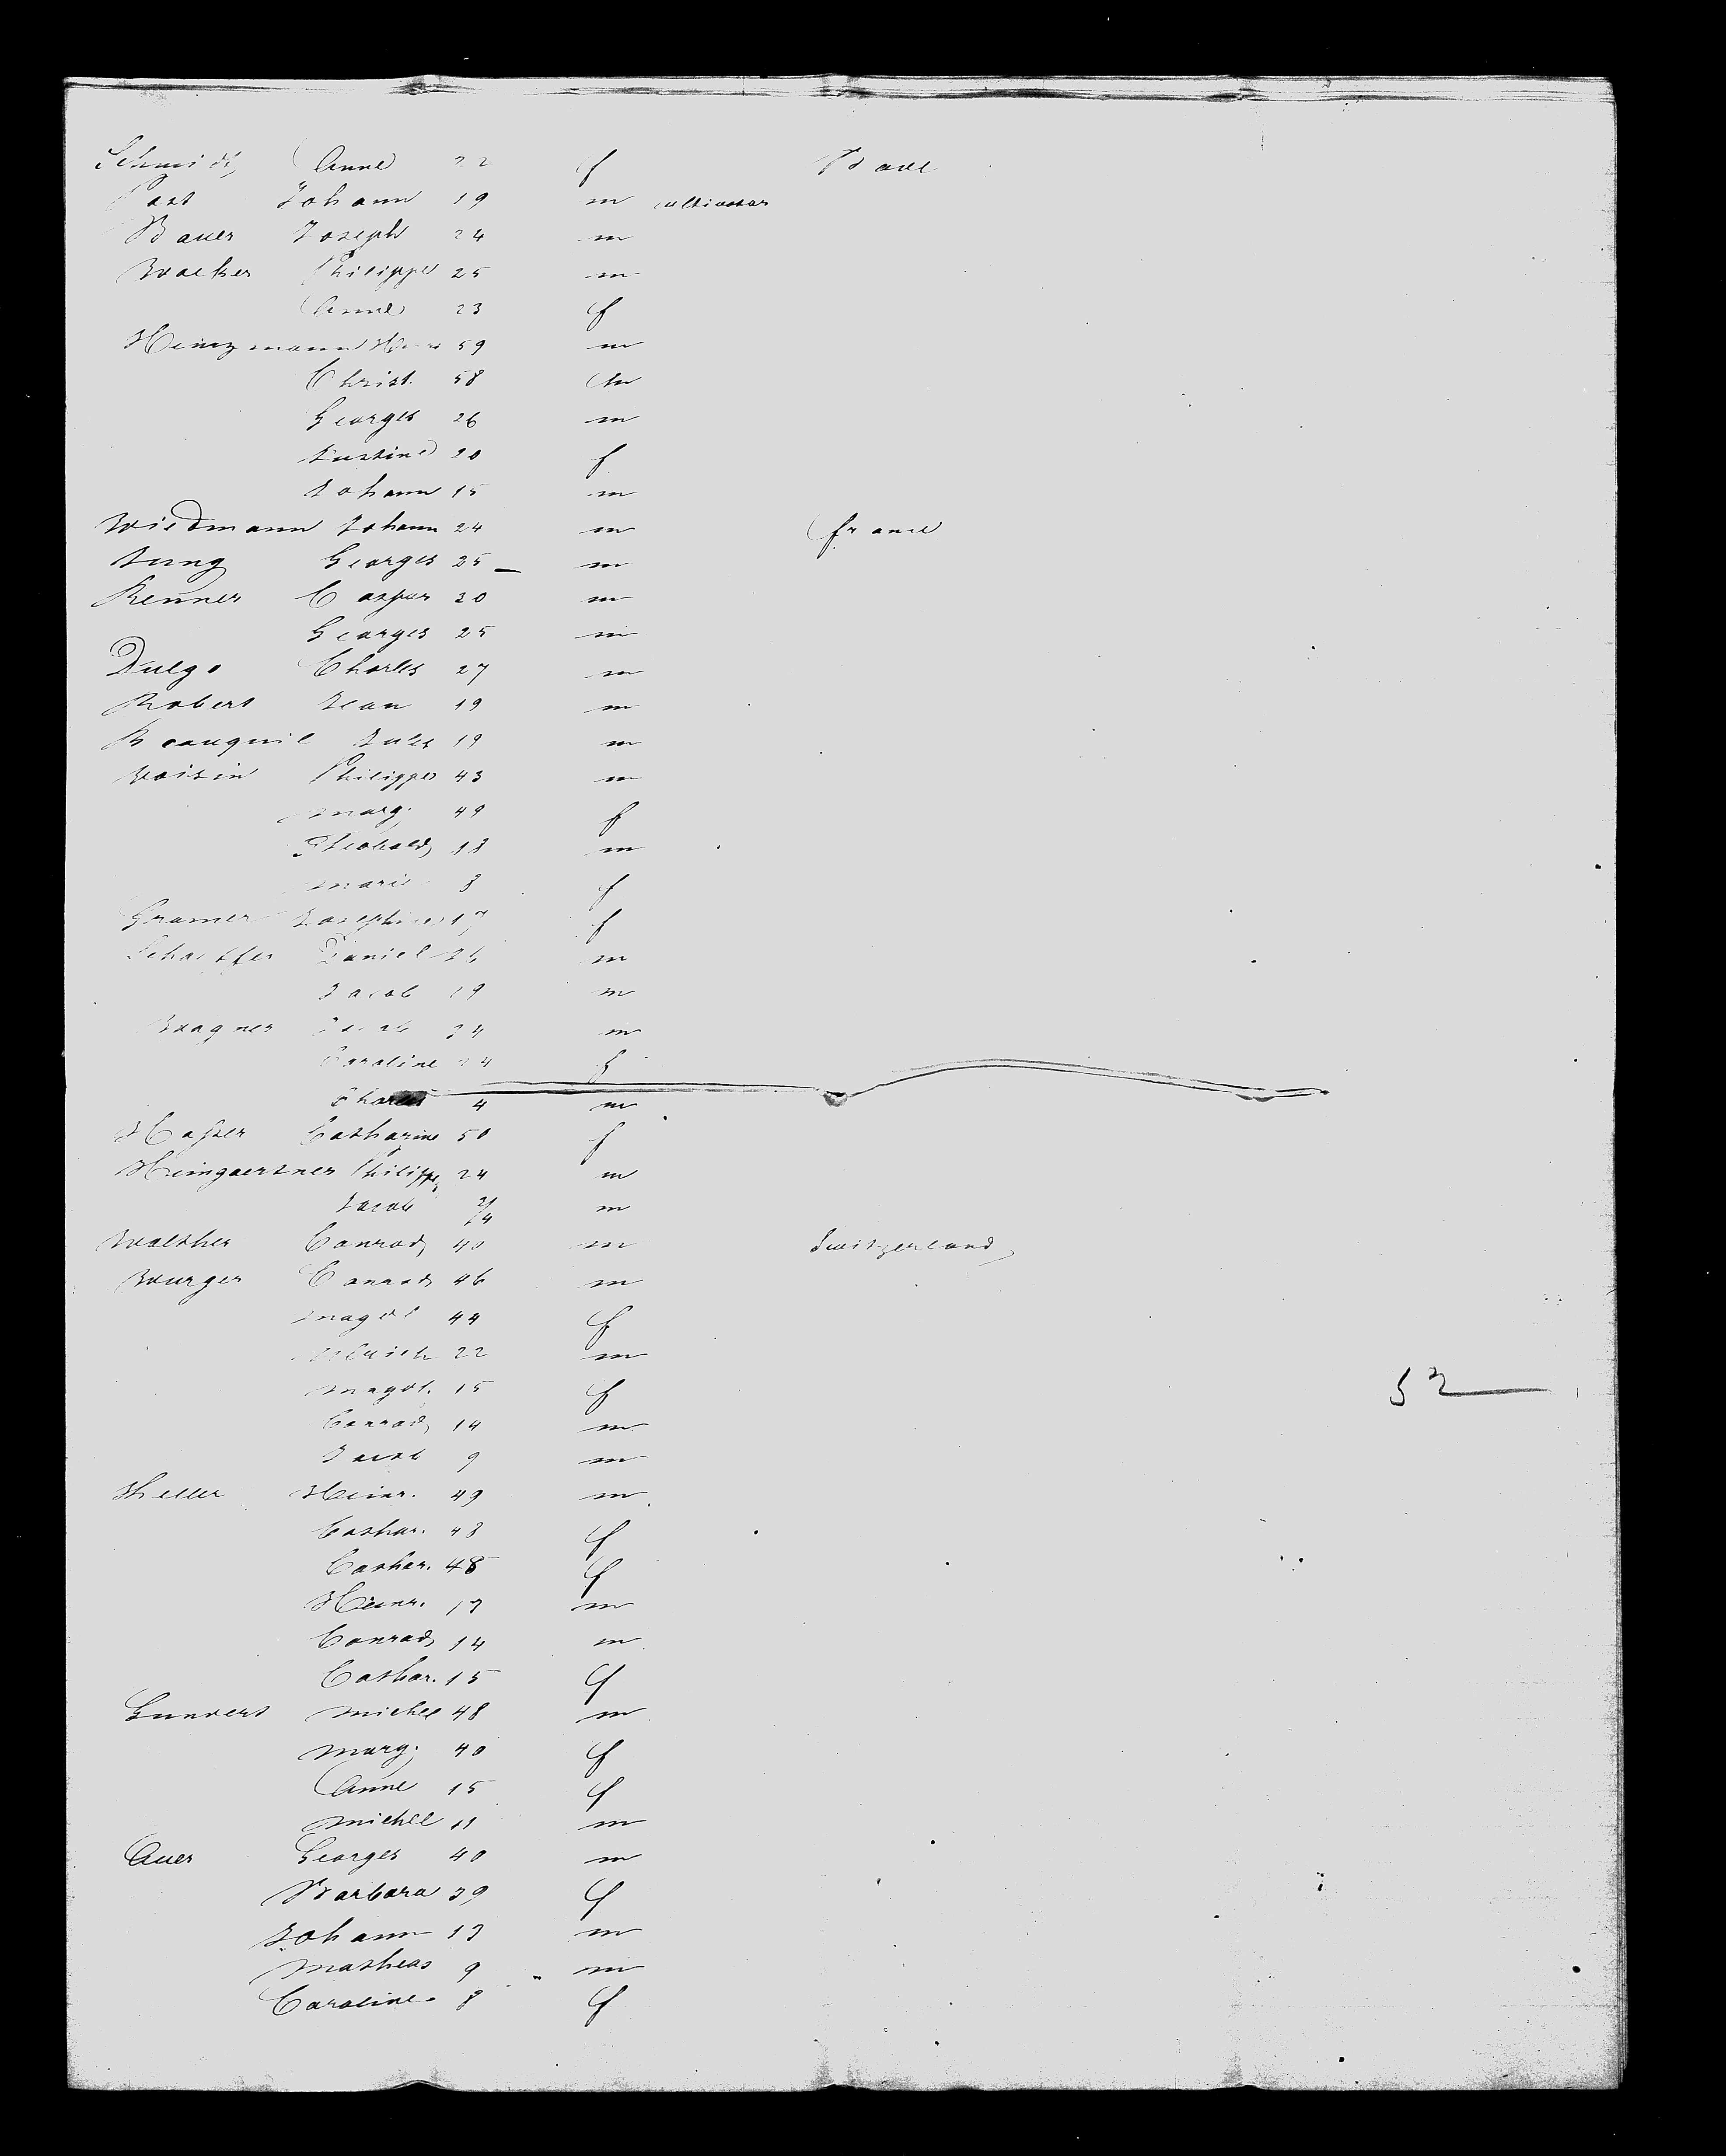 Schmidt, Anne 22 f Bade
Post Johann 19 m cultivator
Bauer Joseph 24 m
Walker Philippe 25 m
Anne 23 f
Heinzmann 59 m
Christ. 58 m
Georges 26 m
Justine 20 f
Johann 15 m
Wiedmann Johann 24 m france
Jung Georges 25 — m
Renner Caspar 20 m
Georges 25 m
Charles 27 m
Robert Jean 19 m
Jules 19 m
Voisin Philippe 43 m
Marg. 49 f
Theobald 13 m
Marie 3 f
Gramer Josephine 17 f
Schaeffer Daniel 26 m
Jacob 19 m
Wagner Jacob 34 m
Caroline 24 f
Charles 4 m
Catharine 50 f
Heimgaertner Philippe 24 m
Jacob m
Walther Conrad 40 m Switzerland
Wurger Conrad 46 m
Magdl 44 f
Ulrich 22 m
Magdl. 15 f
52
Conrad 14 m
Jacob 9 m
Keller Heinr. 49 m
Cathar. 43 f
Cathar. 48 f
Heinr. 17 m
Conrad 14 m
Cathar. 15 f
Michel 48 m
Marg. 40 f
Anne 15 f
Michel 11 m
Auer Georges 40 m
Barbara 39 f
Johann 13 m
Matheas 9 m
Caroline 8 f